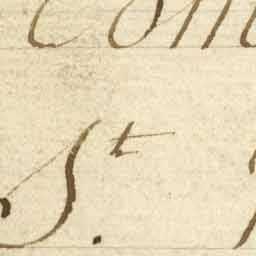 Com
St.